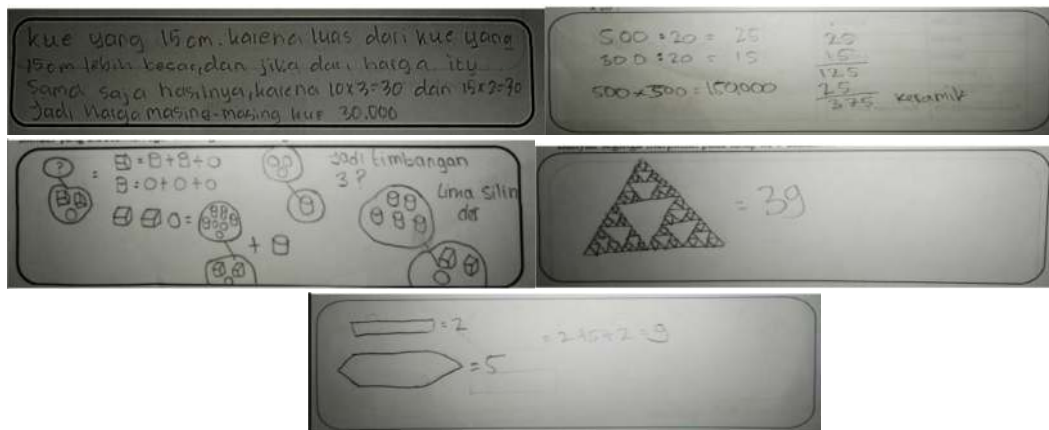 kue yang 15 cm. karena luas dari kue yang
15 cm lebih besar, dan jika dari harga itu
sama saja hasilnya, karena 10x3=30 dan 15x2=30
Jadi harga masing-masing kue 30.000
500 : 20 = 25
300 : 20 = 15
500 x 300 = 150.000
25
15
125
25
375 keramik
?
=
+
Jadi timbangan
3?
Lima silin
der
= 39
= 2
= 5
= 2+5+2=9